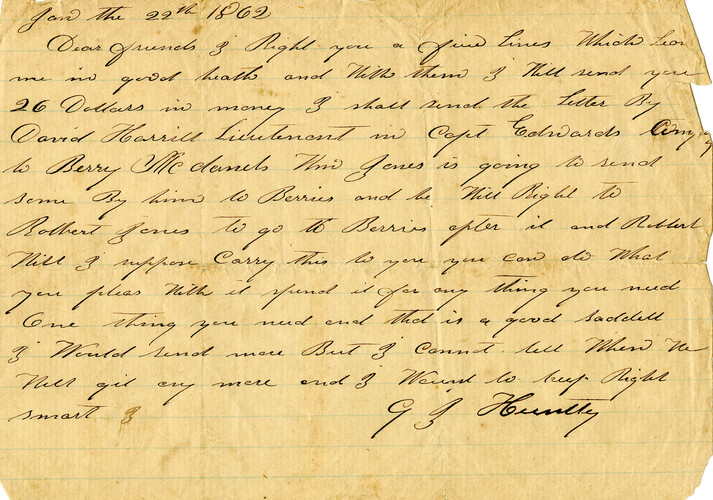 Jan the 22th 1862
Dear friends I Right you a few Lines Which Leav
me in good heath and With them I Will send you
26 Dollars in money I shall send the Letter By
David Harrill Lieutenant in Capt Edwards Compny
to Berry McDaniels Wm Jones is going to send
some By him to Berries and he Will Right to
Rolbert Jones to go to Berries after it and Robbert
Will I suppose Carry this to you you can do What
you pleas With it spend it for any thing you need
One thing you need and that is a good Saddell
I Would send more But I cannt tell When We
Will git any more and I Waunt to keep Right
smart I G J Huntley